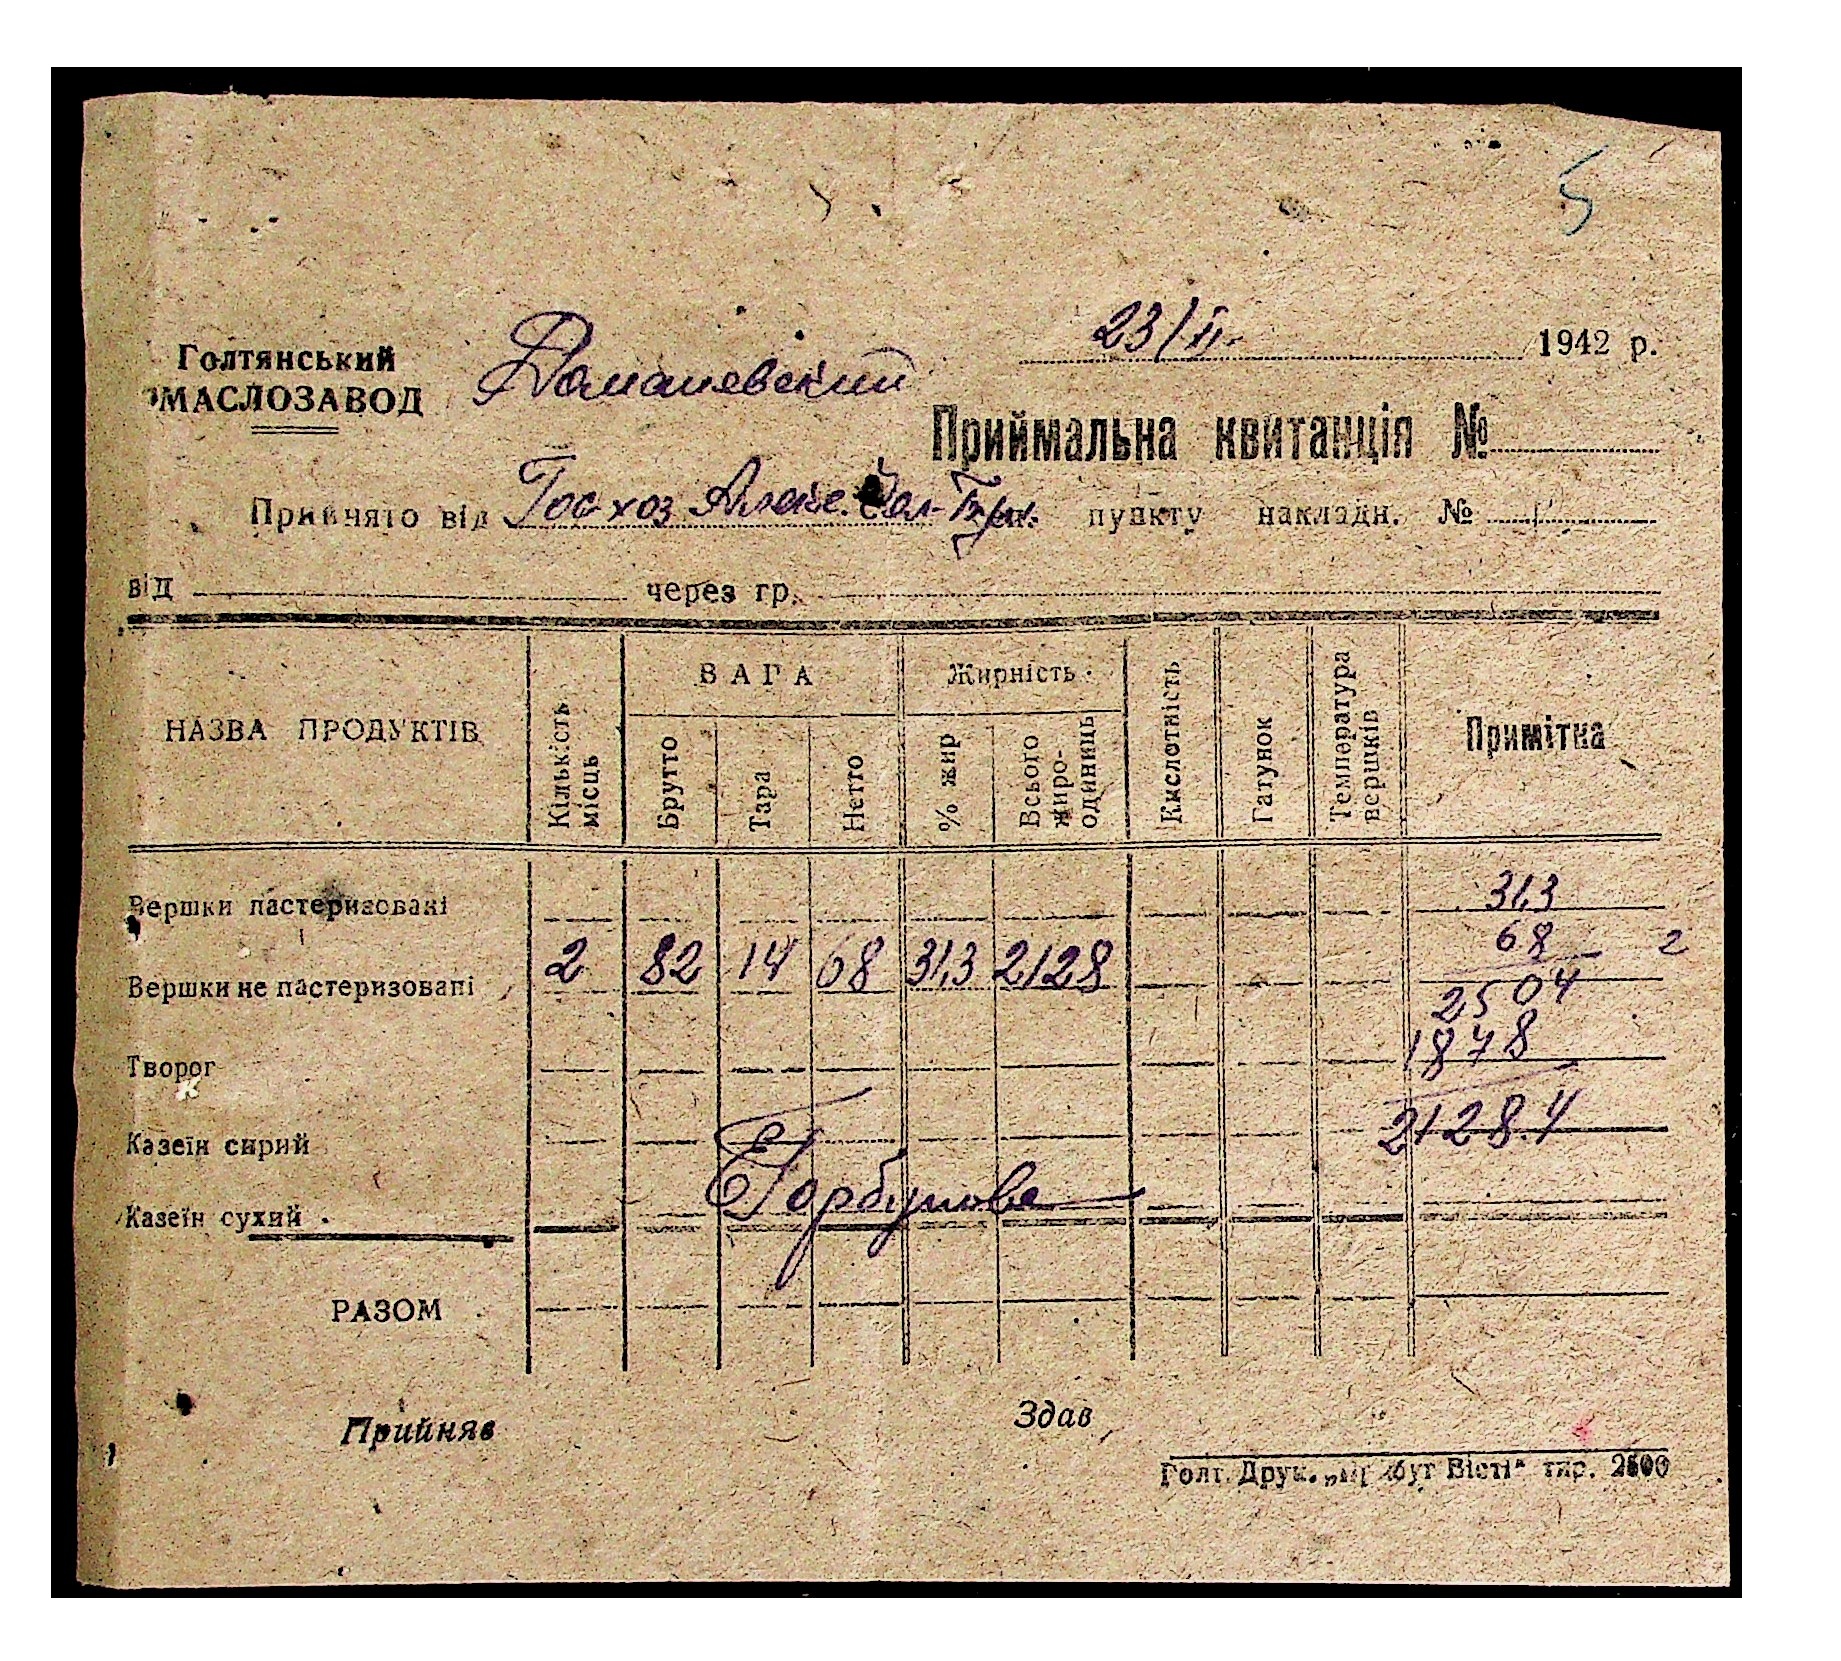 5
23/II 1942 р.
Голтянський
МАСЛОЗАВОД
Доманевский
Приймальна квитанція №
Прийнято від Госхоз Алексе. пункту накладн. №
від через гр.
НАЗВА ПРОДУКТІВ
Кількість місць
ВАГА
Брутто
Тара
Нетто
Жирність
% жир
Всього жиро-одиниць
Кислотність
Гатунок
Температура вершків
Примітка
Вершки пастеризовані 31,3
68 2
Вершки не пастеризовані 2 82 14 68 31,3 2128
2504
Творог 1878
Казеїн сирий 2128.4
Казеїн сухий
Горбунова
РАЗОМ
Прийняв Здав
Голт. Друк. „Прибуг Вісті“ тир. 2500